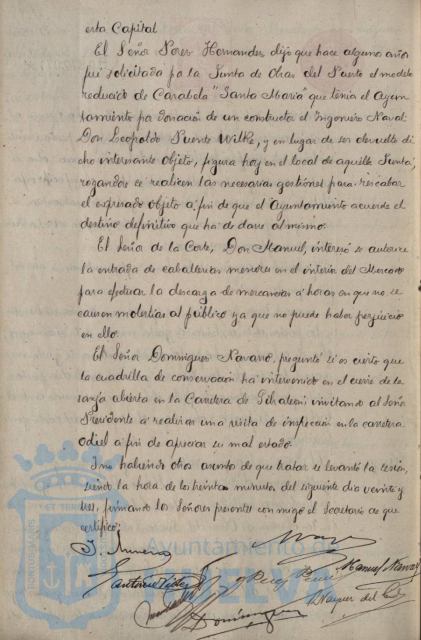 esta Capital
El Señor Perez Hernandez dijo que hace algunos años
fué solicitada pa la Junta de Obras del Puerto el modelo
reducido de Carabela "Santa Maria" que tenia el Ayun-
tamiento pa donacion de un constructor el Ingeniero Naval
Don Leopoldo Puente Wilke, y en lugar de ser devuelto di
cho interesante objeto, figura hoy en el local de aquella Junta,
rogandose se realicen las necesarias gestiones para rescabar
el expresado objeto a fin de que el Ayuntamiento acuerde el
destino definitivo que ha de darse al mismo.
El Señor de la Corte, Don Manuel, interesó se autorice
la entrada de caballerias menores en el interior del Mercado
para efectuar la descarga de mercancias á horas en que no se
causen molestias al público ya que no puede haber perjuicio
en ello.
El Señor Dominguez Navarro, preguntó si es cierto que
la cuadrilla de conservación ha intervenido en el cierre de la
zanja abierta en la Carretera de Gibraleon invitando al Señor
Presidente á realizar una visita de inspección en la carretera
Odiel a fin de apreciar su mal estado.
Y no habiendo otro asunto de que tratar se levantó la sesión,
siendo la hora de los treinta minutos del siguiente dia veinte y
tres, firmando los Señores presentes con migo el Secretario de que
certifico;
Manuel Narvaez
Vazquez del
Dominguez
Ayuntamiento de
HUELVA